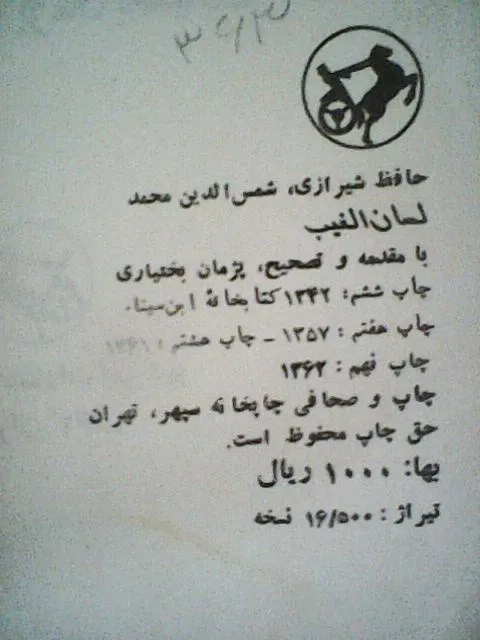 حافظ شیرازی، شمس‌الدین محمد
لسان‌الغیب
با مقدمه و تصحیح، پژمان بختیاری
چاپ ششم: ۱۳۴۲ کتابخانهٔ ابن‌سینا.
چاپ هفتم: ۱۳۵۷ - چاپ هشتم: ۱۳۶۱
چاپ نهم: ۱۳۶۲
چاپ و صحافی چاپخانه سپهر، تهران
حق چاپ محفوظ است.
بها: ۱۰۰۰ ریال
تیراژ: ۱۶/۵۰۰ نسخه